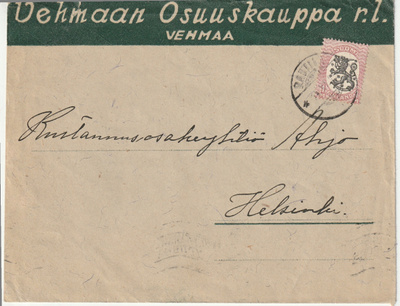 Vehmaan Osuuskauppa r.l.
VEHMAA
Kustannusosakeyhtiö Ahjo
Helsinki.